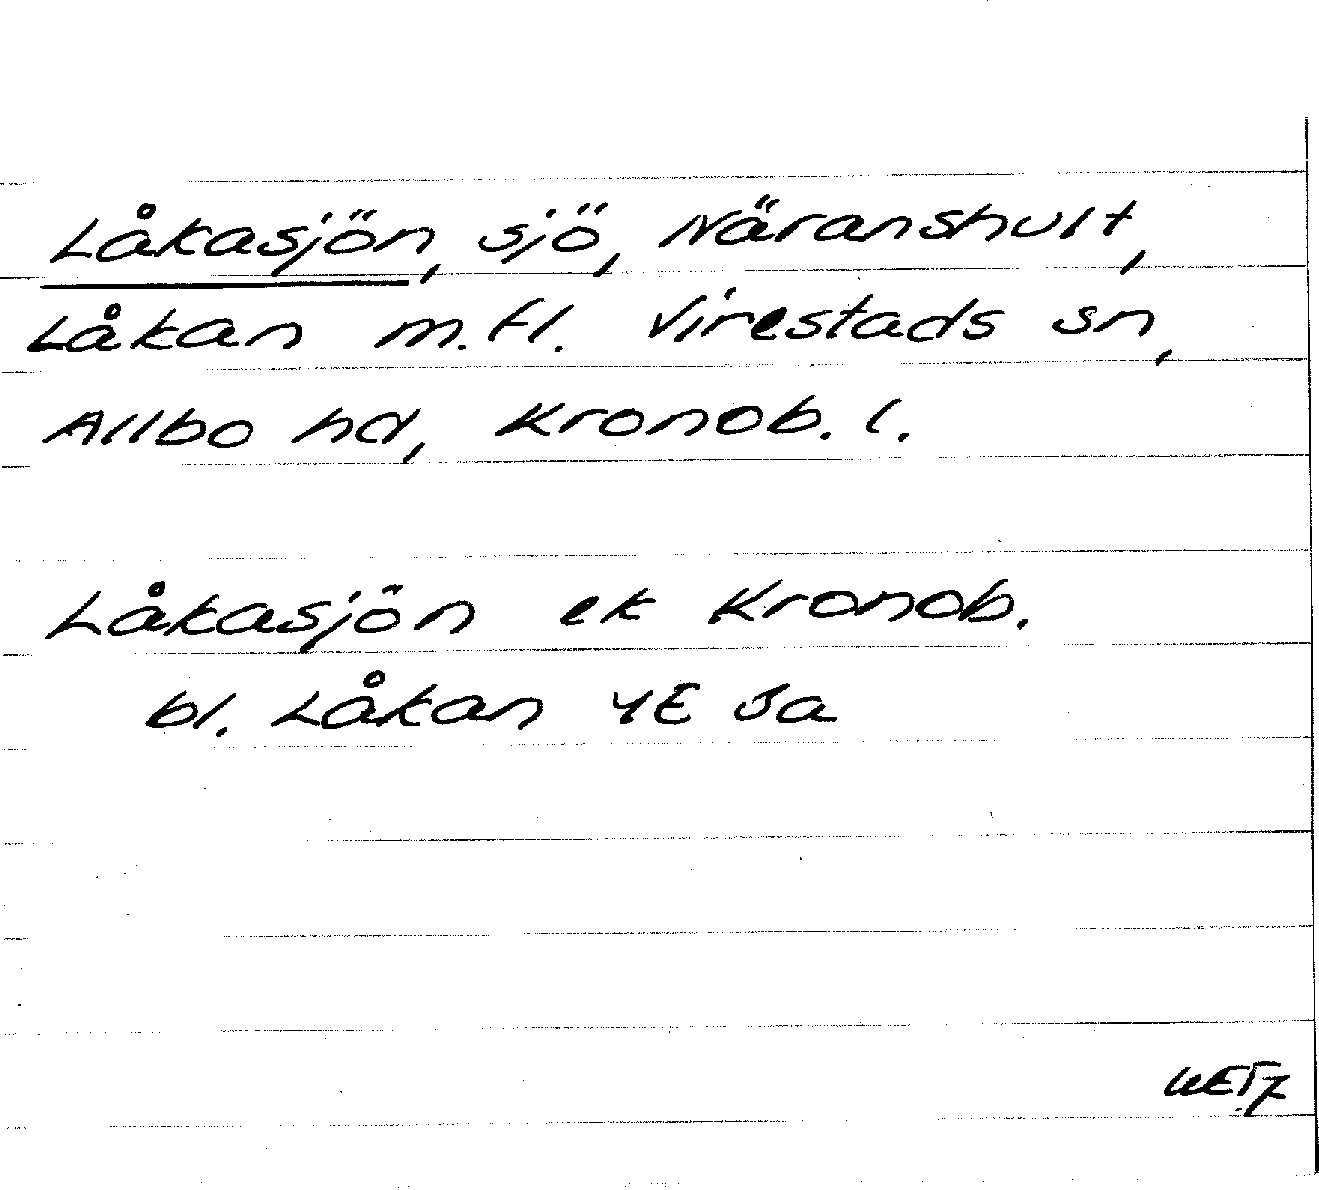 Låkasjön, sjö, Näranshult,
Låkan m.fl. Virestads sn,
Allbo hd, Kronob. l.
Låkasjön ek Kronob.
bl. Låkan 4E Ja